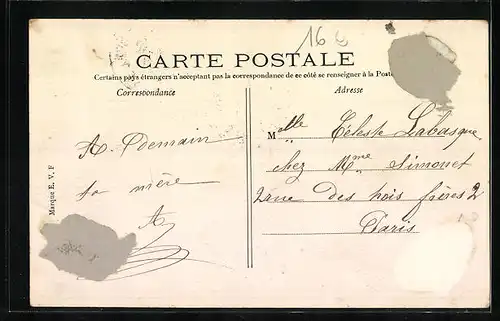 16
CARTE POSTALE
Certains pays étrangers n'acceptant pas la correspondance de ce côté se renseigner à la Poste
Correspondance
Adresse
A. Demain
ta mère
Melle Céleste Labasque
chez Mme Simonet
2 rue des trois frères 2
Paris
Marque E. V. F